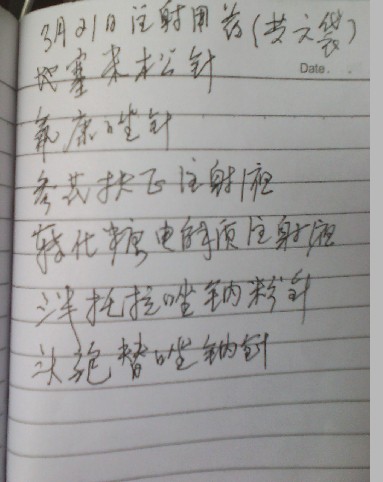 3月21日注射用药(黄文袋)
地塞米松针
Date.
氟康唑针
参芪扶正注射液
转化糖电解质注射液
泮托拉唑钠粉针
头孢替唑钠针